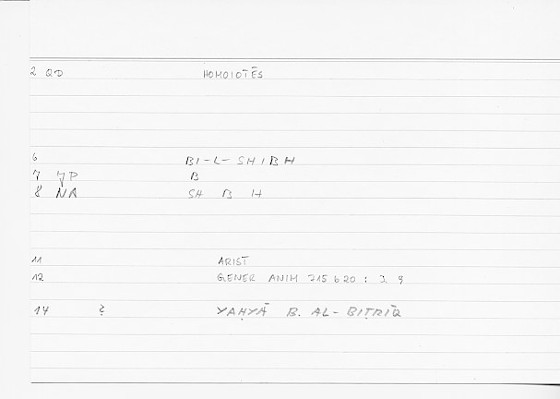 2 QD HOMOIOTĒS
6 BI-L-SHIBH
7 JP B
8 NR SH B H
11 ARIST
12 GENER ANIM 715 b 20 : 3. 9
14 ? YAḤYĀ B. AL-BIṬRĪQ